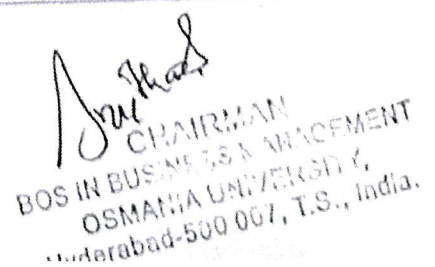 CHAIRMAN
BOS IN BUSINESS MANAGEMENT
OSMANIA UNIVERSITY,
Hyderabad-500 007, T.S., India.